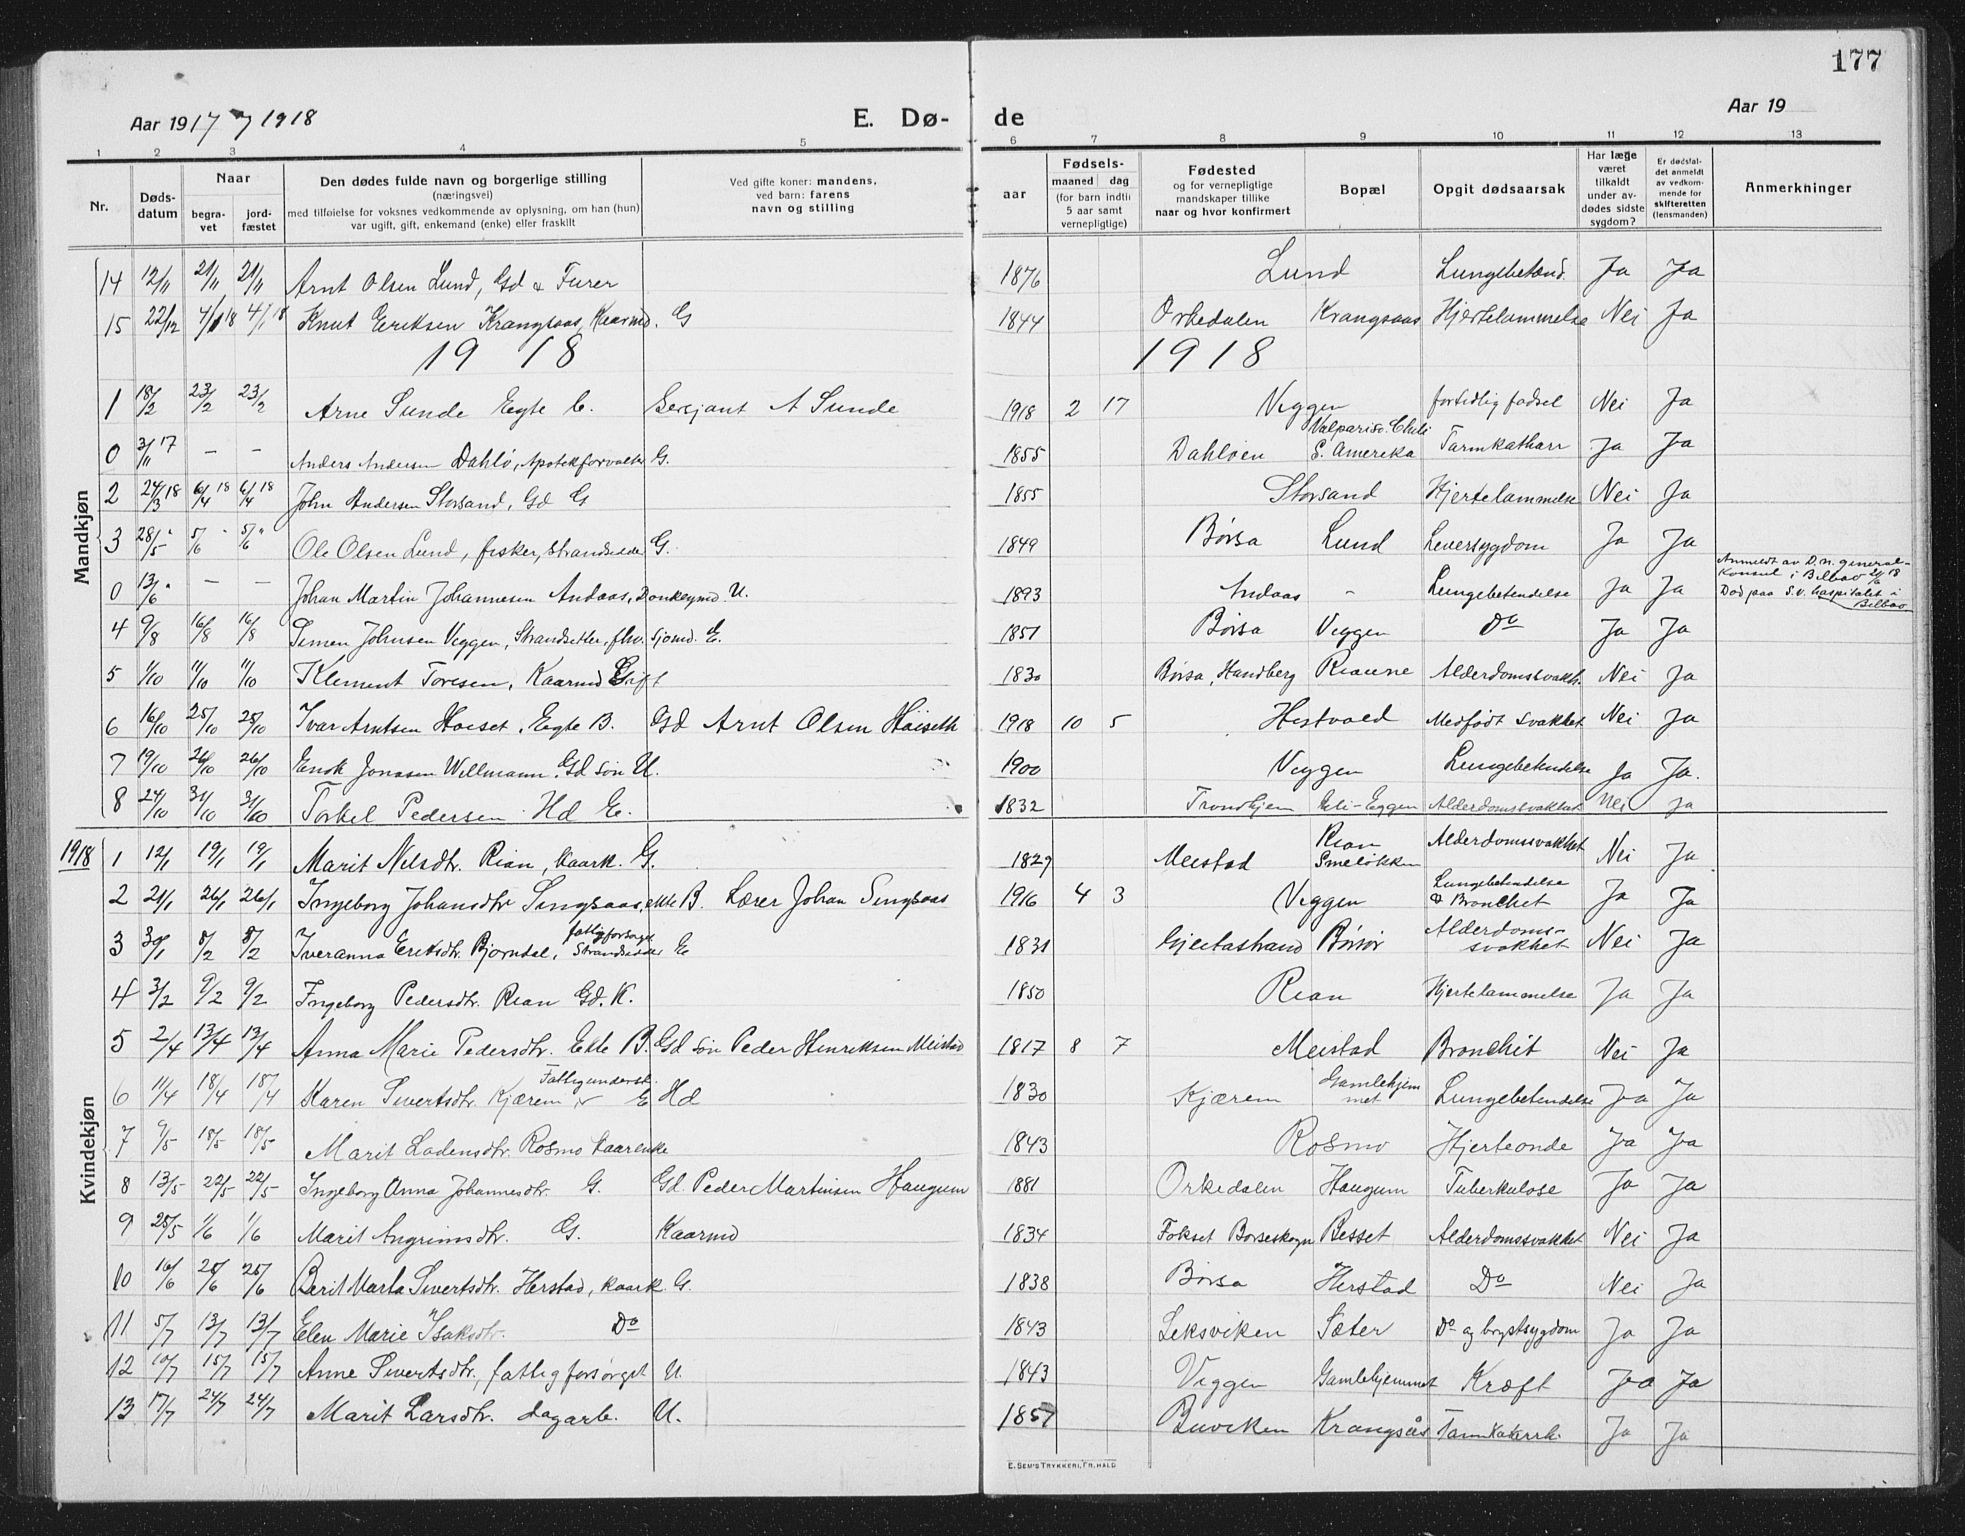 177
Aar 1917 og 1918 E. Dø- de Aar 19
1 2 3 4 5 6 7 8 9 10 11 12 13
Nr. Døds-datum Naar begra-vet jord-fæstet Den dødes fulde navn og borgerlige stilling (næringsvei) med tilføielse for voksnes vedkommende av oplysning, om han (hun) var ugift, gift, enkemand (enke) eller fraskilt Ved gifte koner: mandens, ved barn: farens navn og stilling Fødsels- aar maaned dag (for barn indtil 5 aar samt vernepligtige) Fødested og for vernepligtige mandskaper tillike naar og hvor konfirmert Bopæl Opgit dødsaarsak Har læge været tilkaldt under av-dødes sidste sygdom? Er dødsfal-det anmeldt av vedkom-mende for skifteretten (lensmanden) Anmerkninger
Mandkjøn
14 12/11 21/11 21/11 Arnt Olsen Lund, Gd & Furer 1876 Lund Lungebetænd. Ja Ja
15 22/12 4/1 18 4/1 18 Knut Eriksen Krangsaas, Kaarmd. G 1844 Orkedalen Krangsaas Hjertelammelse Nei Ja
1918 1918
1 18/2 23/2 23/2 Arne Sunde Egte b. Sersjant A Sunde 1918 2 17 Viggen fortidlig fødsel Nei Ja
0 3/11 17 – – Anders Andersen Dahlø, Apotekforvalter G. 1855 Dahløen Valpariso. Chili S. Amerika Tarmkatharr Ja Ja
2 24/3 18 6/4 18 6/4 18 John Andersen Storsand, Gd G 1855 Storsand Hjertelammelse Nei Ja
3 28/5 " 5/6 " 5/6 " Ole Olsen Lund, fisker, strandsidder G. 1849 Børsa Lund Leversygdom Ja Ja
0 13/6 " – – Johan Martin Johannesen Andaas, Donkeymd. U. 1893 Andaas – Lungebetendelse Ja Ja Anmeldt av D.n. general-konsul i Bilbao 21/6 18 Død paa S.V. hospitalet i Bilbao
4 9/8 16/8 16/8 Simen Johnsen Viggen, Strandsetler, fhv. sjømd. E. 1851 Børsa Viggen Do Ja Ja
5 1/10 11/10 11/10 Klement Toresen, Kaarmd Gift 1830 Børsa, Handberg Rianne Alderdomssvakh. Nei Ja
6 16/10 25/10 25/10 Ivar Arntsen Høiset, Egte B. Gd Arnt Olsen Höiseth 1918 10 5 Hestvold Medfødt svakhet Nei Ja
7 19/10 26/10 26/10 Enok Jonasen Willmann, Gd søn U. 1900 Viggen Lungebetendelse Ja Ja.
8 24/10 31/10 31/10 Torkel Pedersen Hd E. 1832 Trondhjem Eli-Eggen Alderdomssvakhet Nei Ja
1918 Kvindekjøn
1 12/1 19/1 19/1 Marit Nilsdtr. Rian, kaark. G. 1829 Meistad Rian Smeløkken Alderdomssvakhet Nei Ja
2 21/1 26/1 26/1 Ingeborg Johansdtr Singsaas, ekte B. Lærer Johan Singsaas 1916 4 3 Viggen Lungebetendelse & Bronchit Ja Ja
3 30/1 8/2 8/2 Iveranna Eriksdtr. Bjørndal, fattigforsørget Strandsidder E 1831 Gjeitastrand Børsør Alderdoms-svakhet Nei Ja
4 3/2 9/2 9/2 Ingeborg Pedersdtr. Rian Gd. K. 1850 Rian Hjertelammelse Ja Ja
5 2/4 13/4 13/4 Anna Marie Pedersdtr. Ekte B. Gd søn Peder Henriksen Meistad 1817 8 7 Meistad Bronchit Nei Ja
6 11/4 18/4 18/4 Karen Sivertsdtr. Kjærem, Fattigunderst. E Hd 1830 Kjærem Gamlehjemmet Lungebetendelse Ja Ja
7 9/5 18/5 18/5 Marit Ladensdtr. Rosmo kaarenke 1843 Rosmo Hjerteonde Ja Ja
8 13/5 22/5 22/5 Ingeborg Anna Johannesdtr. G. Gd. Peder Martinsen Haugum 1881 Orkedalen Haugum Tuberkulose Ja Ja
9 25/5 1/6 1/6 Marit Angrimsdtr. G. Kaarmd 1834 Fokset Børseskogn Besset Alderdomssvakhet Nei Ja
10 16/6 25/6 25/6 Berit Marta Sivertsdtr. Herstad, kaark. G. 1838 Børsa Herstad Do Nei Ja
11 5/7 13/7 13/7 Elen Marie Isaksdtr. Do 1843 Leksviken Sæter Do og brystsygdom Ja Ja
12 10/7 15/7 15/7 Anne Sivertsdtr, fattigforsørget U. 1843 Viggen Gamlehjemmet Kræft Ja Ja
13 17/7 24/7 24/7 Marit Larsdtr. dagarb. U. 1857 Buviken Krangsås Tarmkatarrh. Ja Ja
E. SEM'S TRYKKERI, FR.HALD